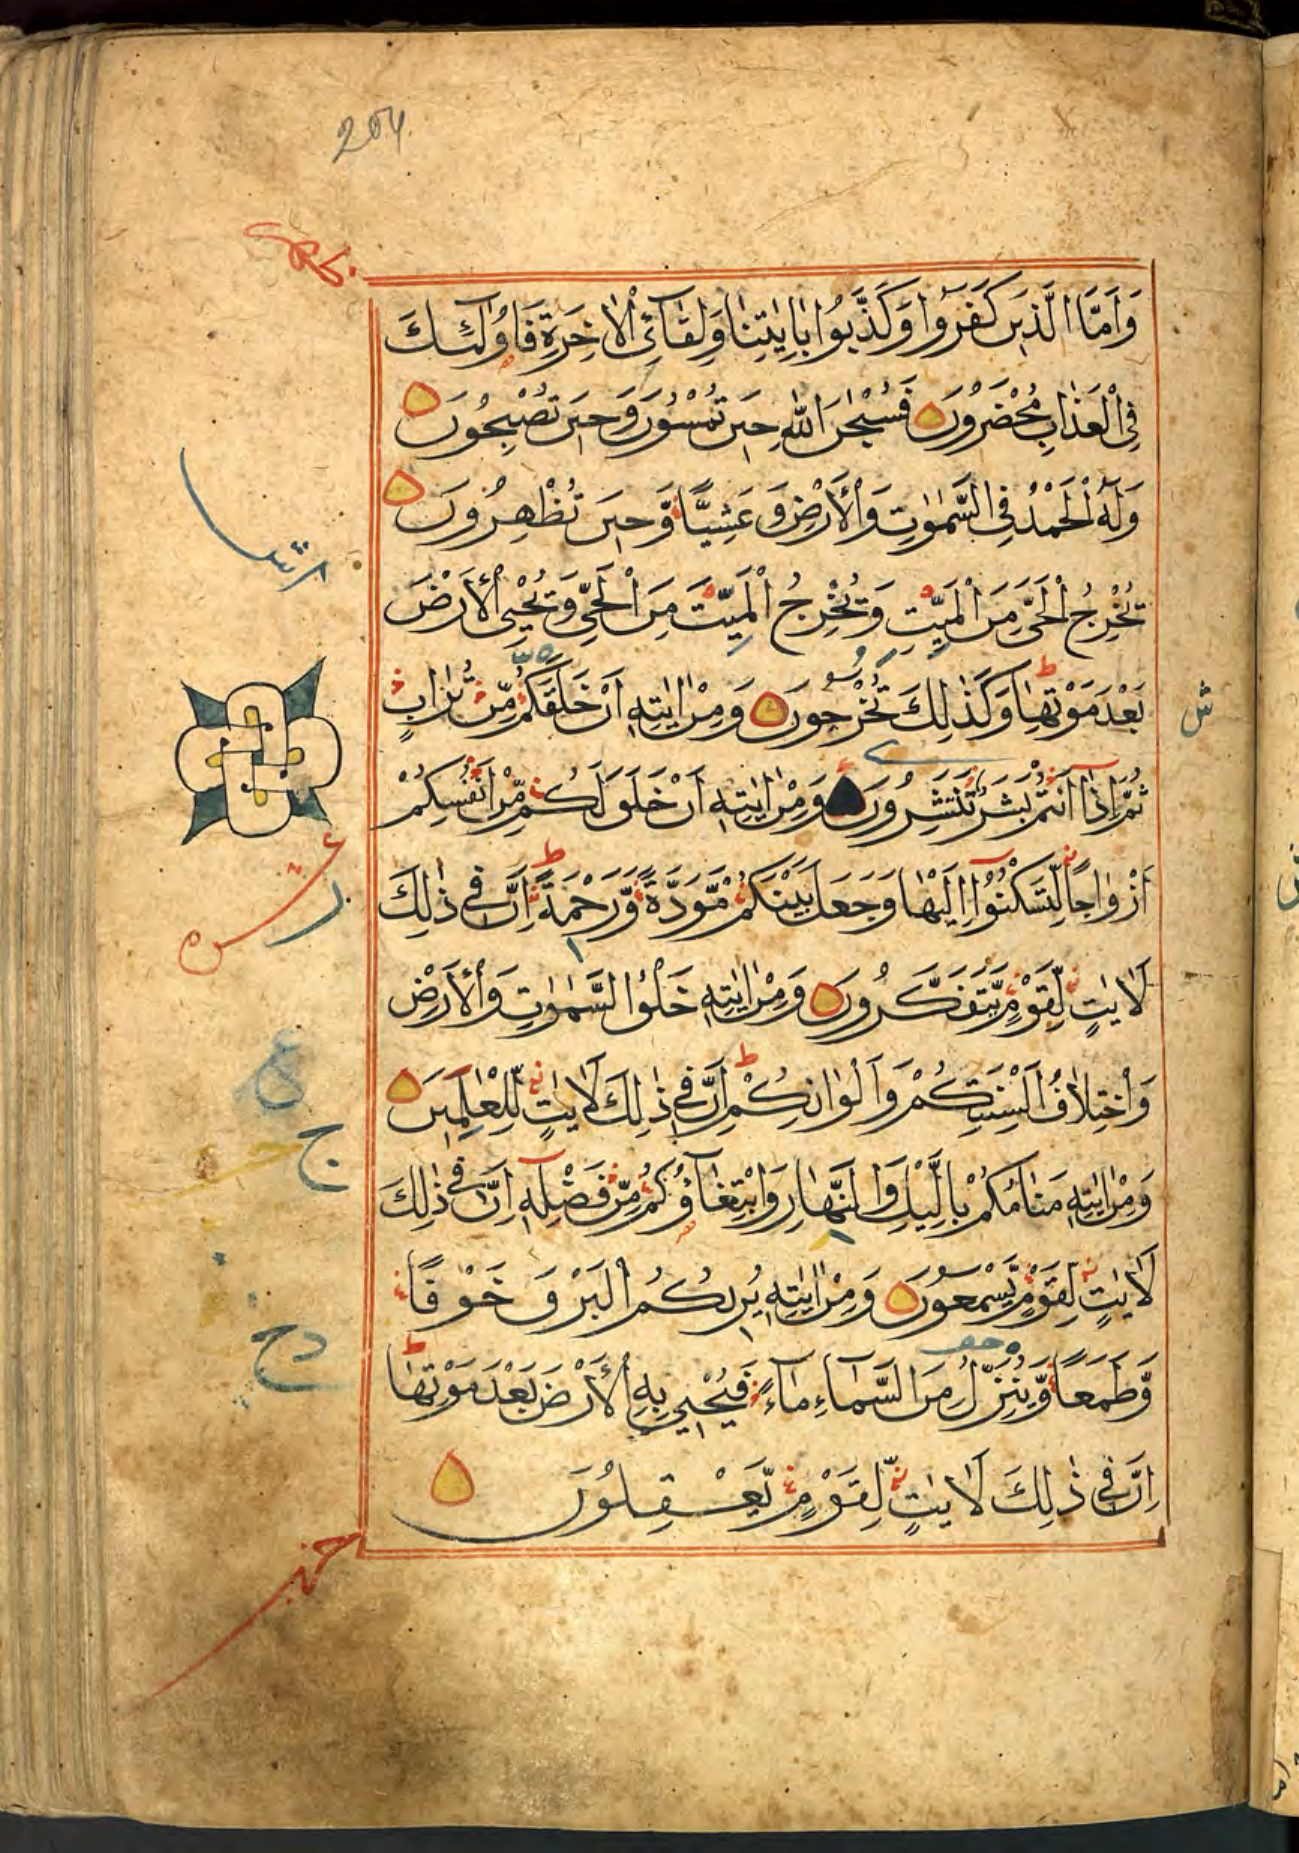 204
وَاَمَّا الَّذِينَ كَفَرُوا وَكَذَّبُوا بِاٰيٰتِنَا وَلِقَآئِ الْاٰخِرَةِ فَاُولٰٓئِكَ
فِي الْعَذَابِ مُحْضَرُونَ فَسُبْحٰنَ اللّٰهِ حِينَ تُمْسُونَ وَحِينَ تُصْبِحُونَ
وَلَهُ الْحَمْدُ فِي السَّمٰوٰتِ وَالْاَرْضِ وَعَشِيًّا وَّحِينَ تُظْهِرُونَ
يُخْرِجُ الْحَيَّ مِنَ الْمَيِّتِ وَيُخْرِجُ الْمَيِّتَ مِنَ الْحَيِّ وَيُحْيِ الْاَرْضَ
بَعْدَ مَوْتِهَا وَكَذٰلِكَ تُخْرَجُونَ وَمِنْ اٰيٰتِهِ اَنْ خَلَقَكُمْ مِّنْ تُرَابٍ
ثُمَّ اِذَآ اَنْتُمْ بَشَرٌ تَنْتَشِرُونَ وَمِنْ اٰيٰتِهِ اَنْ خَلَقَ لَكُمْ مِّنْ اَنْفُسِكُمْ
اَزْوَاجًا لِّتَسْكُنُوٓا اِلَيْهَا وَجَعَلَ بَيْنَكُمْ مَّوَدَّةً وَّرَحْمَةً اِنَّ فِي ذٰلِكَ
لَاٰيٰتٍ لِّقَوْمٍ يَّتَفَكَّرُونَ وَمِنْ اٰيٰتِهِ خَلْقُ السَّمٰوٰتِ وَالْاَرْضِ
وَاخْتِلَافُ اَلْسِنَتِكُمْ وَاَلْوَانِكُمْ اِنَّ فِي ذٰلِكَ لَاٰيٰتٍ لِّلْعٰلِمِينَ
وَمِنْ اٰيٰتِهِ مَنَامُكُمْ بِالَّيْلِ وَالنَّهَارِ وَابْتِغَآؤُكُمْ مِّنْ فَضْلِهِ اِنَّ فِي ذٰلِكَ
لَاٰيٰتٍ لِّقَوْمٍ يَّسْمَعُونَ وَمِنْ اٰيٰتِهِ يُرِيكُمُ الْبَرْقَ خَوْفًا
وَّطَمَعًا وَّيُنَزِّلُ مِنَ السَّمَآءِ مَآءً فَيُحْيِي بِهِ الْاَرْضَ بَعْدَ مَوْتِهَا
اِنَّ فِي ذٰلِكَ لَاٰيٰتٍ لِّقَوْمٍ يَّعْقِلُونَ
ش
ع
ج